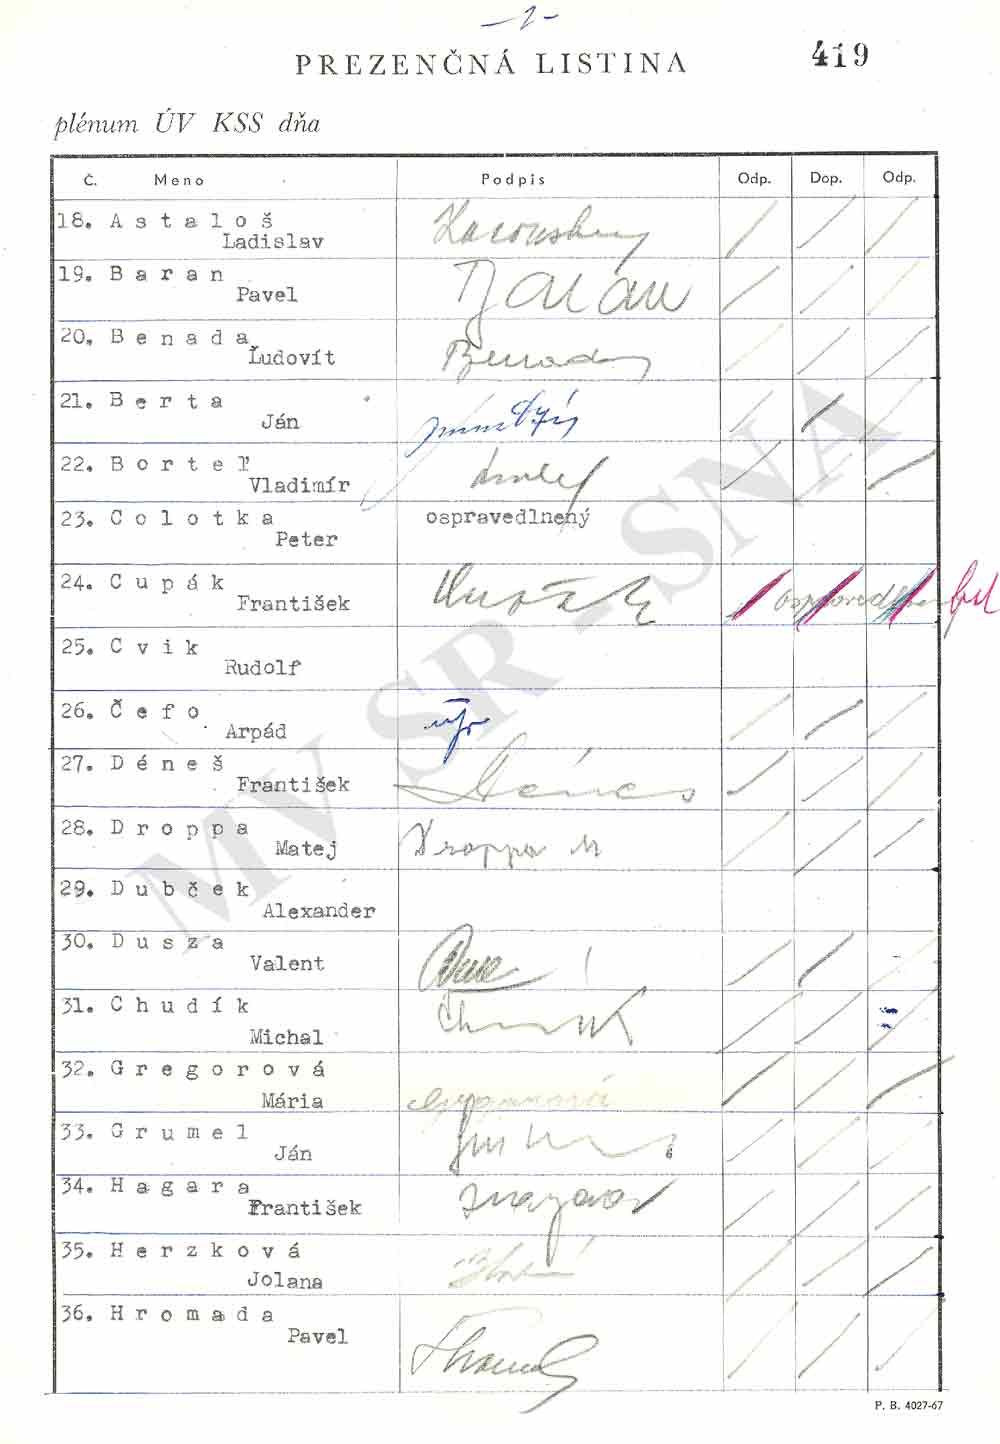 - 2 -
PREZENČNÁ LISTINA
419
plénum ÚV KSS dňa
Č. Meno Podpis Odp. Dop. Odp.
18. Astaloš
Ladislav
19. Baran Baran
Pavel
20. Benada
Ľudovít
21. Berta
Ján
22. Borteľ
Vladimír
23. Colotka ospravedlnený
Peter
24. Cupák
František
25. Cvik
Rudolf
26. Čefo
Arpád
27. Déneš
František
28. Droppa Droppa M
Matej
29. Dubček
Alexander
30. Dusza
Valent
31. Chudík
Michal
32. Gregorová
Mária
33. Grumel
Ján
34. Hagara
František
35. Herzková
Jolana
36. Hromada
Pavel
MV SR - SNA
P. B. 4027-67